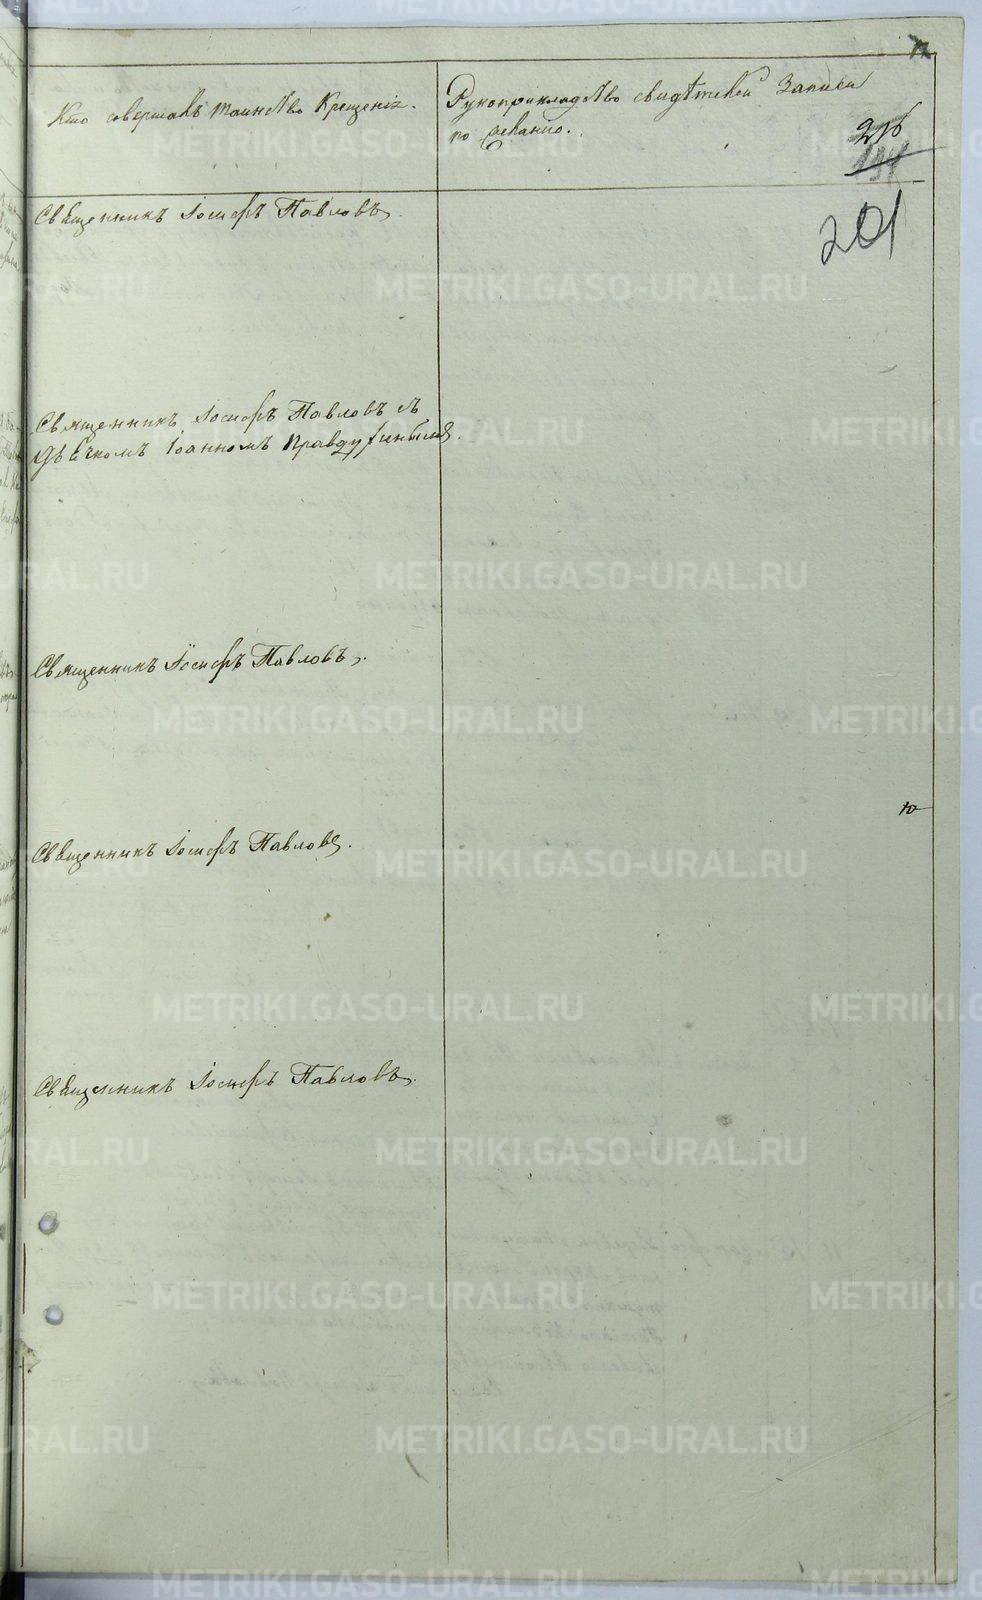 Кто совершалъ таинство Крещенія.
Рукоприкладство свидѣтелей Записи
по желанію.
201
Священникъ Іосифъ Павловъ.
Священникъ Іосифъ Павловъ съ
дьячкомъ Іоанномъ Правдухинымъ.
Священникъ Іосифъ Павловъ.
Священникъ Іосифъ Павловъ.
Священникъ Іосифъ Павловъ.
METRIKI.GASO-URAL.RU